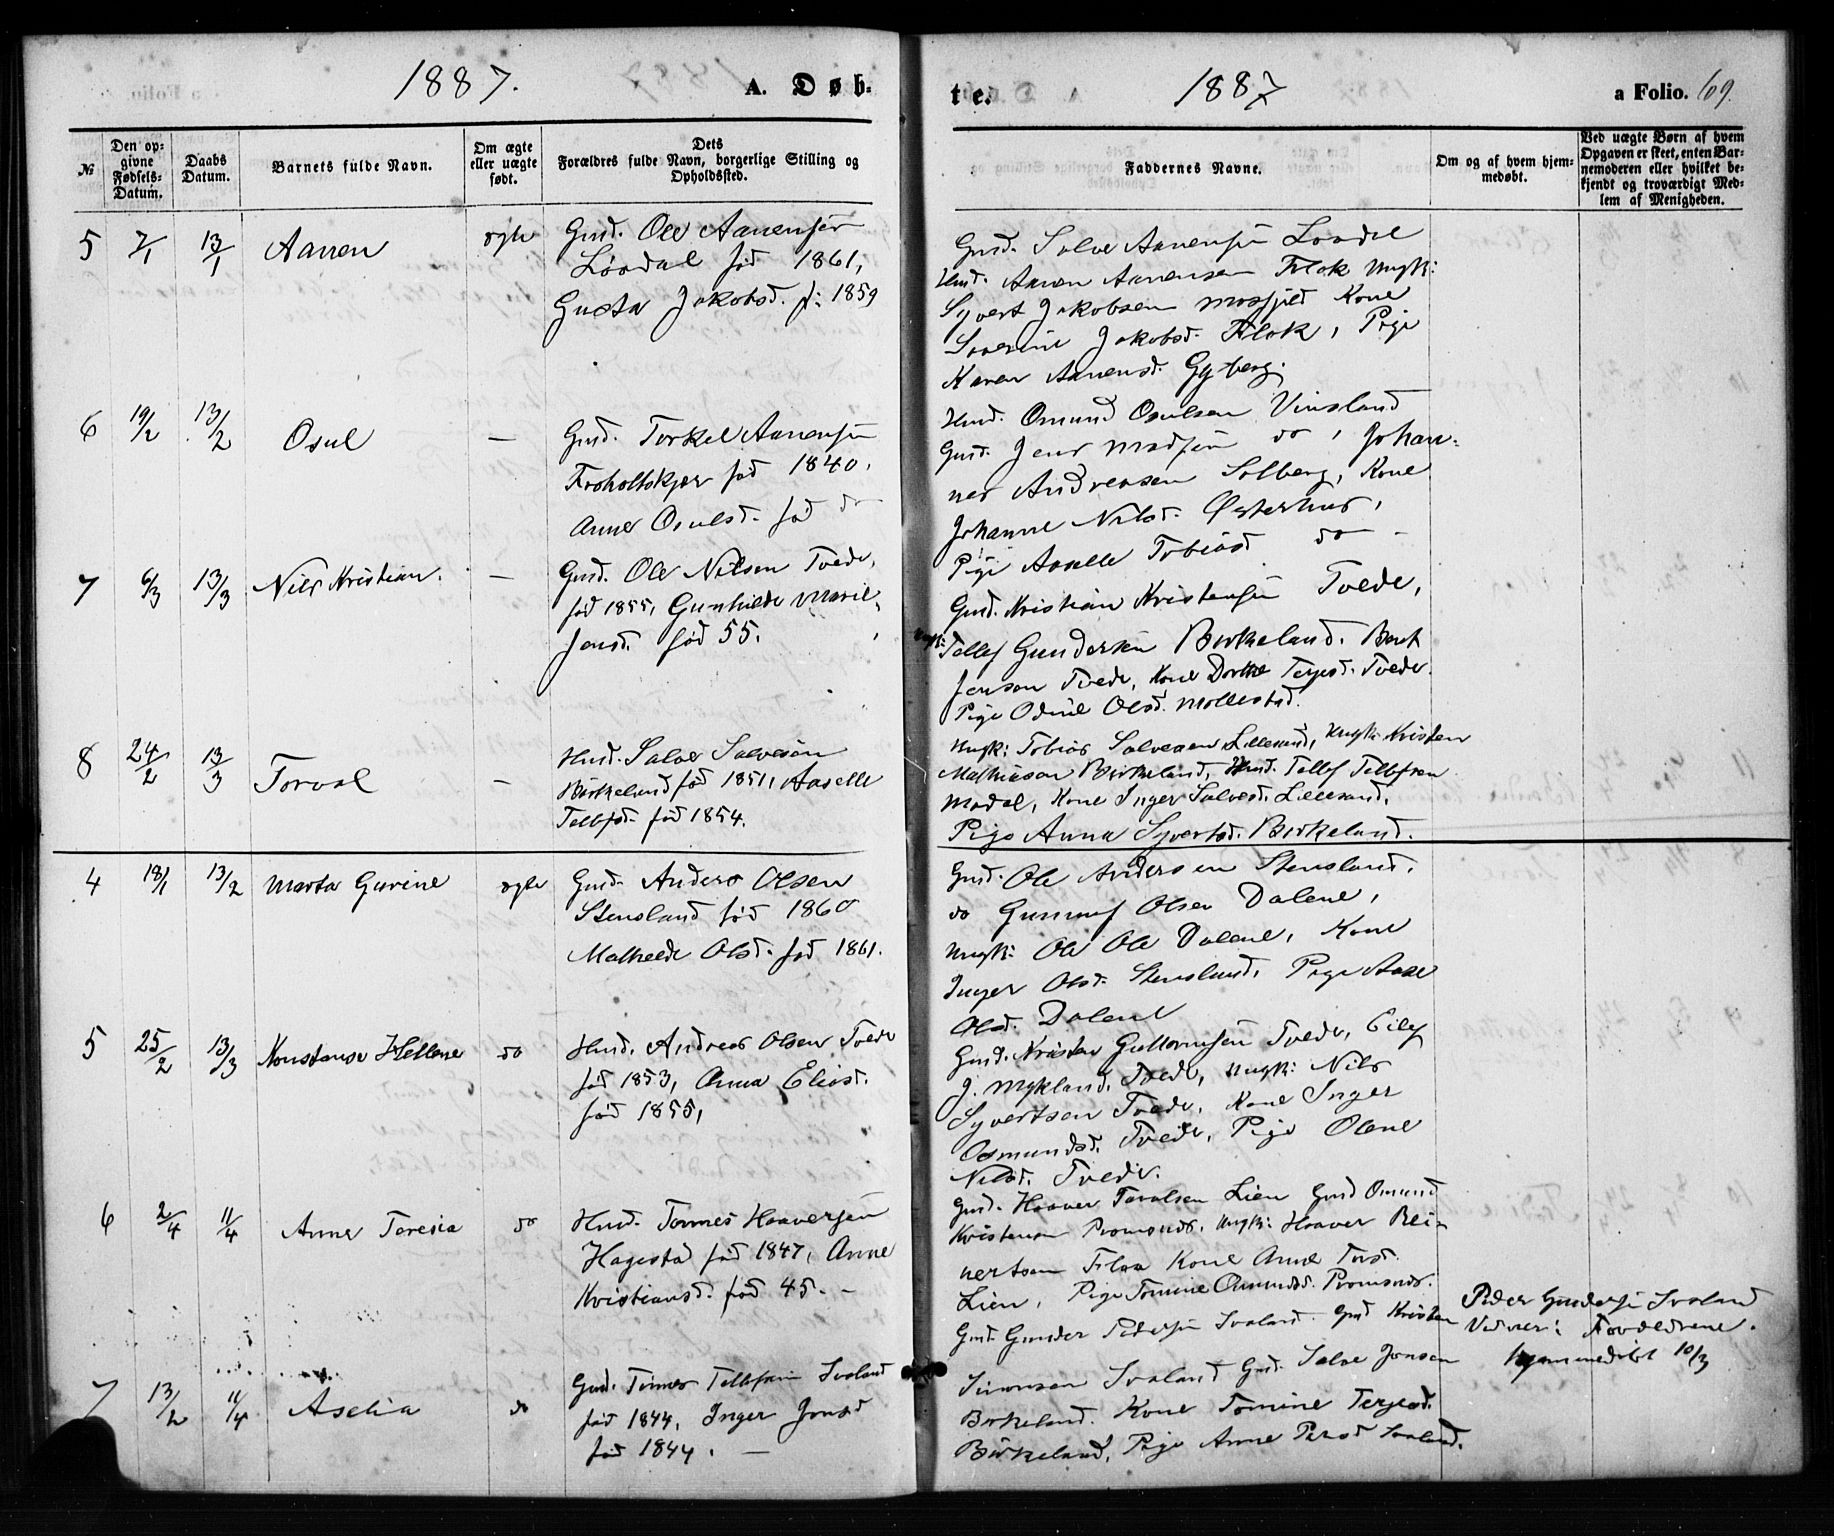 1887. A. Døb-
№
Den op-
givne
Fødsels-
Datum.
Daabs
Datum.
Barnets fulde Navn.
Om ægte
eller uægte
født.
Dets
Forældres fulde Navn, borgerlige Stilling og
Opholdssted.
5 7/1 13/1 Aanen ægte Gmd. Ole Aanensen
Løvdal fød 1861,
Gusta Jakobsd. f: 1859
6 19/2 13/2 Osul — Gmd. Torkel Aanensen
Froholtskjær fød 1840,
Anne Osulsd. fød do
7 6/3 13/3 Nils Kristian. — Gmd. Ole Nilsen Tvede,
fød 1855, Gunhilde Marie
Jensd. fød 55.
8 24/2 13/3 Torval — Hmd. Salve Salvesen
Birkeland fød 1851, Aaselle
Tellefsd. fød 1854.
4 18/1 13/2 Marta Gurine ægte Gmd. Anders Olsen
Stensland fød 1860
Mathilde Olsd. fød 1861.
5 25/2 13/3 Konstanse Hellene do Hmd. Andreas Olsen Tvede
fød 1853, Anna Eliasd.
fød 1855,
6 2/4 11/4 Anne Teresia do Hmd. Tønnes Haaversen
Hagestad fød 1847, Anne
Kristiansd. fød 45. —
7 13/2 11/4 Aselia do Gmd. Tønnes Tellefsen Svaland
fød 1844, Inger Jonsd
fød 1844. —
te. 1887 a Folio. 69.
Faddernes Navne.
Om og af hvem hjem-
medøbt.
Ved uægte Børn af hvem
Opgaven er skeet, enten Bar-
nemoderen eller hvilket be-
kjendt og troværdigt Med-
lem af Menigheden.
Gmd. Salve Aanensen Løvdal
Hmd. Aanen Aanensen Flak Ungk:
Syvert Jakobsen Mosfjeld Kone
Severine Jakobsd. Flak, Pige
Karen Aanensd. Gyberg.
Hmd. Omund Osulsen Vinsland
Gmd. Jens Madsen do, Johan-
nes Andreasen Solberg, Kone
Johanne Nilsd. Østerhus,
Pige Aaselle Tobiasd do —
Gmd. Kristian Kristensen Tvede,
Ungk: Tellef Gundersen Birkeland. Bert
Jensen Tvede, Kone Dorthe Terjesd. Tvede.
Pige Odine Olsd. Mollestad.
Ungk: Tobias Salvesen Lillesand, Ungk: Kristen
Mathiasen Birkeland, Hmd. Tellef Tellefsen
Modal, Kone Inger Salvesd. Lillesand,
Pige Anna Syvertsd. Birkeland.
Gmd. Ole Andersen Stensland,
do Gunnuf Olsen Dalene,
Ungk: Ole Ols Dalene, Kone
Inger Olsd. Stensland, Pige Aase
Olsd. Dalene
Gmd. Kristen Guttormsen Tvede, Eilef
J. Mykland. Tvede, Ungk: Nils
Syvertsen Tvede, Kone Inger
Osmundsd. Tvede, Pige Olene
Nilsd. Tvede.
Gmd. Haaver Tarolsen Lien Gmd Omund
Kristensen Romsnds. Ungk: Haaver Rei-
nertsen Flaa Kone Anne Torsd.
Lien, Pige Tomine Omundsd. Romsnds.
Gmd. Gunder Pedersen Svaland. Gmd Kristen
Simonsen Svaland Gmd. Salve Jensen
Birkeland. Kone Tomine Terjesd.
Birkeland, Pige Anne Persd Svaland.
Peder Gundersen Svaland
hjemmedøbt 10/3